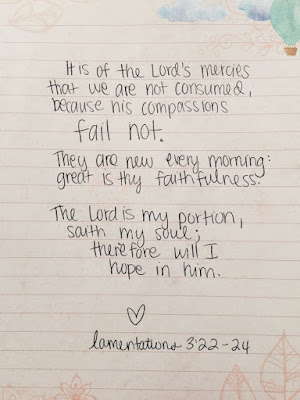 It is of the Lord's mercies
that we are not consumed,
because his compassions
fail not.
They are new every morning:
great is thy faithfulness.
The Lord is my portion,
saith my soul;
therefore will I
hope in him.
lamentations 3:22-24